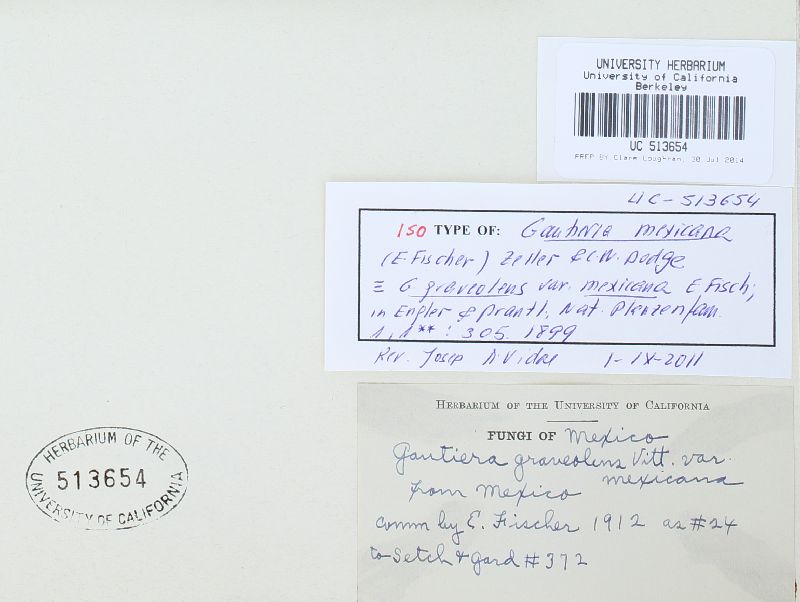 UNIVERSITY HERBARIUM
University of California
Berkeley
UC 513654
PREP BY Clare Loughran, 30 Jul 2014
UC-513654
ISO TYPE OF: Gautieria mexicana
(E. Fischer) Zeller & C.W. Dodge
≡ G graveolens var. mexicana E Fisch;
in Engler & Prantl, Nat. Planzenfam.
1, 1** : 305. 1899
Rev. Josep A. Vidal 1-IX-2011
HERBARIUM OF THE UNIVERSITY OF CALIFORNIA
FUNGI OF Mexico
Gautiera graveolens Vitt. var.
mexicana
from Mexico
comm by E. Fischer 1912 as #24
to Setch & Gard #372
HERBARIUM OF THE
513654
UNIVERSITY OF CALIFORNIA